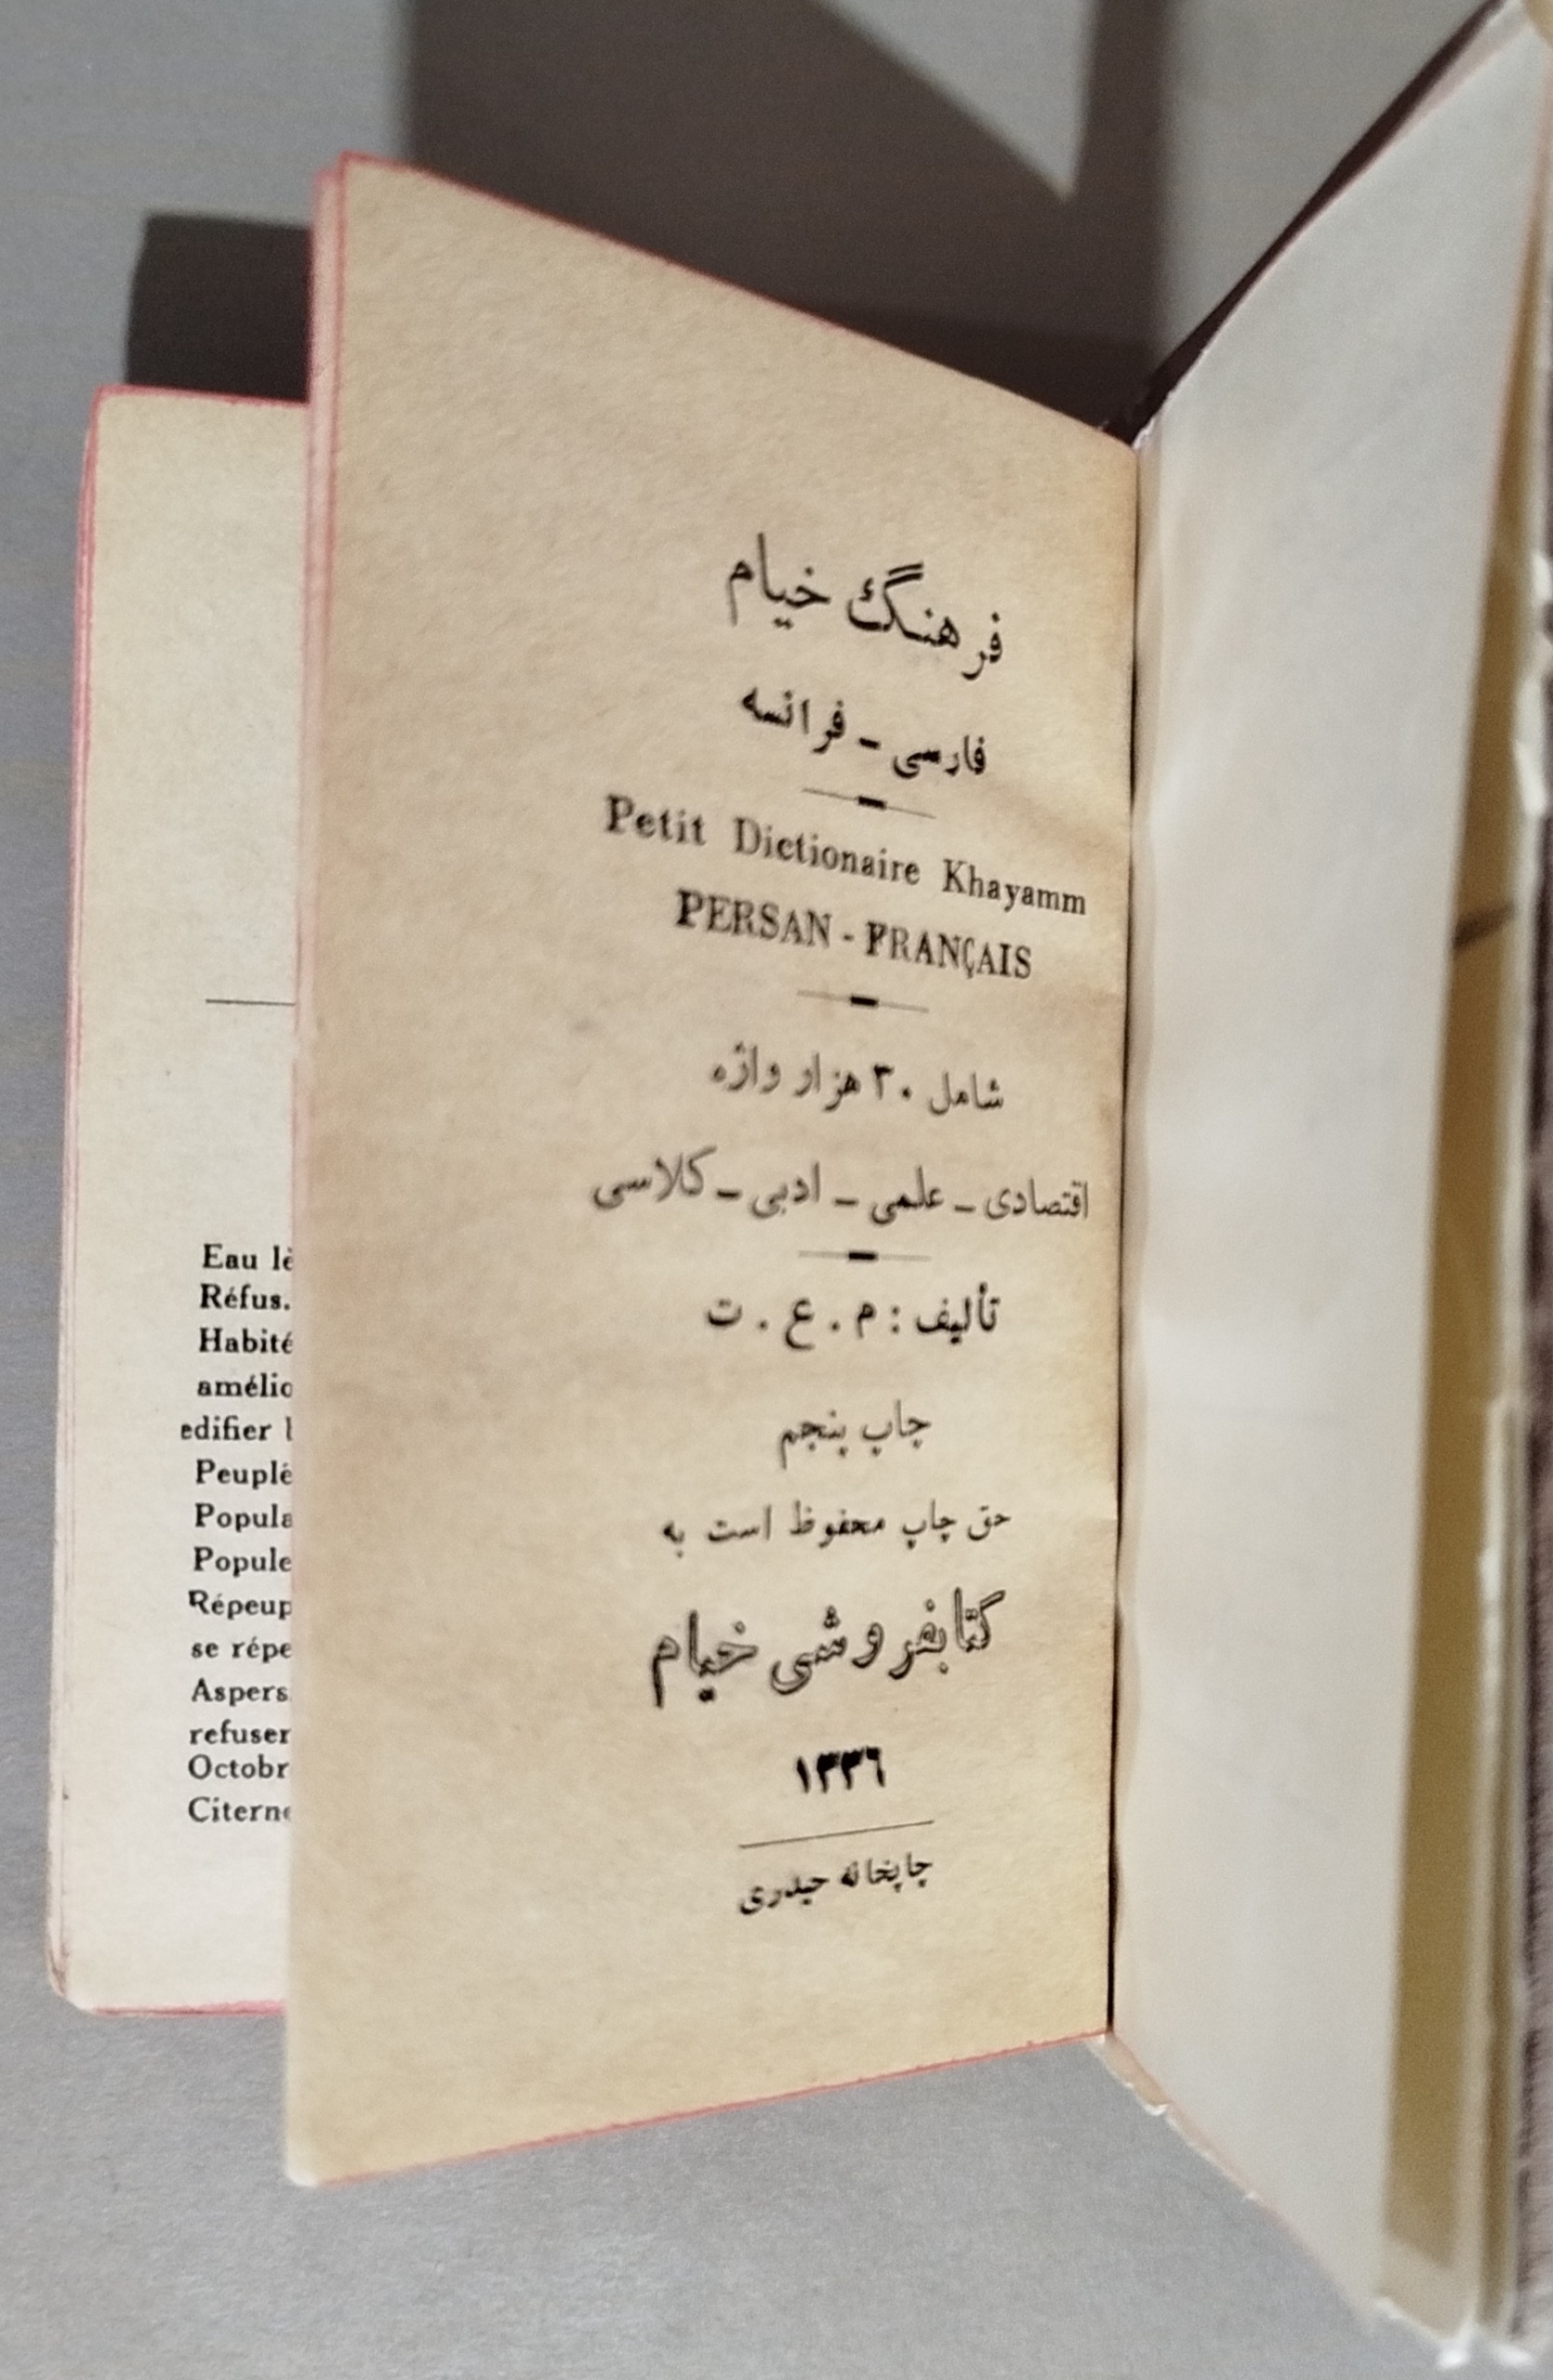 فرهنگ خیام
فارسی ـ فرانسه
Petit Dictionaire Khayamm
PERSAN - FRANÇAIS
شامل ۳۰ هزار واژه
اقتصادی ـ علمی ـ ادبی ـ کلاسی
تألیف : م . ع . ت
چاپ پنجم
حق چاپ محفوظ است به
کتابفروشی خیام
۱۳۳۶
چاپخانه حیدری
Eau lè
Réfus.
Habité
amélio
edifier
Peuplé
Popula
Popule
Répeup
se répe
Aspers
refuser
Octobr
Citerne